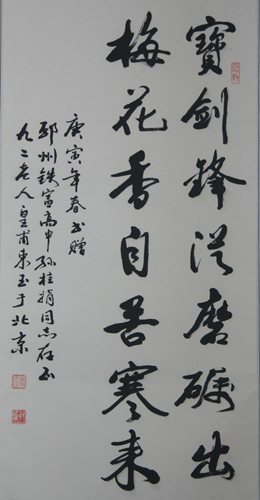 寶劍鋒從磨礪出
梅花香自苦寒来
庚寅年春书赠
邳州铁富高中孙桂同志存正
九二老人皇甫東玉于北京